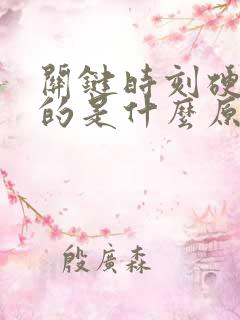 關鍵時刻硬
的是什麼原
殷廣森